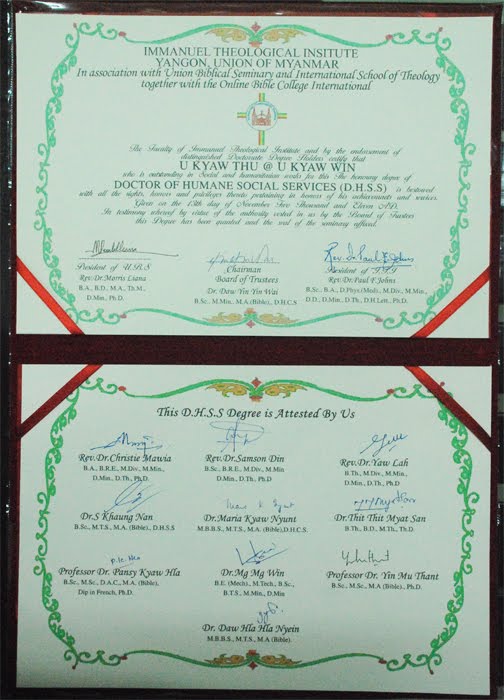 IMMANUEL THEOLOGICAL INSITUTE
YANGON, UNION OF MYANMAR
In association with Union Biblical Seminary and International School of Theology
together with the Online Bible College International
The Faculty of Immanuel Theological Institute and by the endorsement of
distinguished Doctorate Degree Holders certify that
U KYAW THU @ U KYAW WIN
who is outstanding in Social and humanitarian works for this The honorary degree of
DOCTOR OF HUMANE SOCIAL SERVICES (D.H.S.S) is bestowed
with all the rights, honors and privileges thereto pertaining in honour of his achievements and services.
Given on the 13th day of November Two Thousand and Eleven A.D.
In testimony whereof by virtue of the authority vested in us by the Board of Trustees
this Degree has been granted and the seal of the seminary affixed.
President of U.B.S
Rev. Dr. Morris Liana
B.A., B.D., M.A., Th.M.,
D.Min., Ph.D.
Chairman
Board of Trustees
Dr. Daw Yin Yin Wai
B.Sc., M.Min., M.A.(Bible), D.H.C.S
Rev. Dr. Paul F. Johns
President of I.T.I
Rev.Dr.Paul F.Johns
B.Sc., B.A., D.Phys.(Medi)., M.Div., M.Min.,
D.D., D.Min., D.Th., D.H.Lett., Ph.D.
This D.H.S.S Degree is Attested By Us
Rev.Dr.Christie Mawia
B.A., B.R.E., M.Div., M.Min.,
D.Min., D.Th., Ph.D.
Rev.Dr.Samson Din
B.Sc., B.R.E., M.Div., M.Min
D.Min., D.Th., Ph.D
Rev.Dr.Yaw Lah
B.Th., M.Div., M.Min.,
D.Min., D.Th., Ph.D.
Dr.S Khaung Nan
B.Sc., M.T.S., M.A. (Bible)., D.H.S.S
Dr.Maria Kyaw Nyunt
M.B.B.S., M.T.S., M.A. (Bible).,D.H.C.S.
Dr.Thit Thit Myat San
B.Th., B.D., M.Th., Th.D.
Professor Dr. Pansy Kyaw Hla
B.Sc., M.Sc., D.A.C., M.A. (Bible).,
Dip in French, Ph.D.
Dr.Mg Mg Win
B.E. (Mech)., M.Tech., B.Sc.,
B.T.S., M.Min., D.Min
Professor Dr. Yin Mu Thant
B.Sc., M.Sc., M.A (Bible)., Ph.D.
Dr. Daw Hla Hla Nyein
M.B.B.S., M.T.S., M.A (Bible).